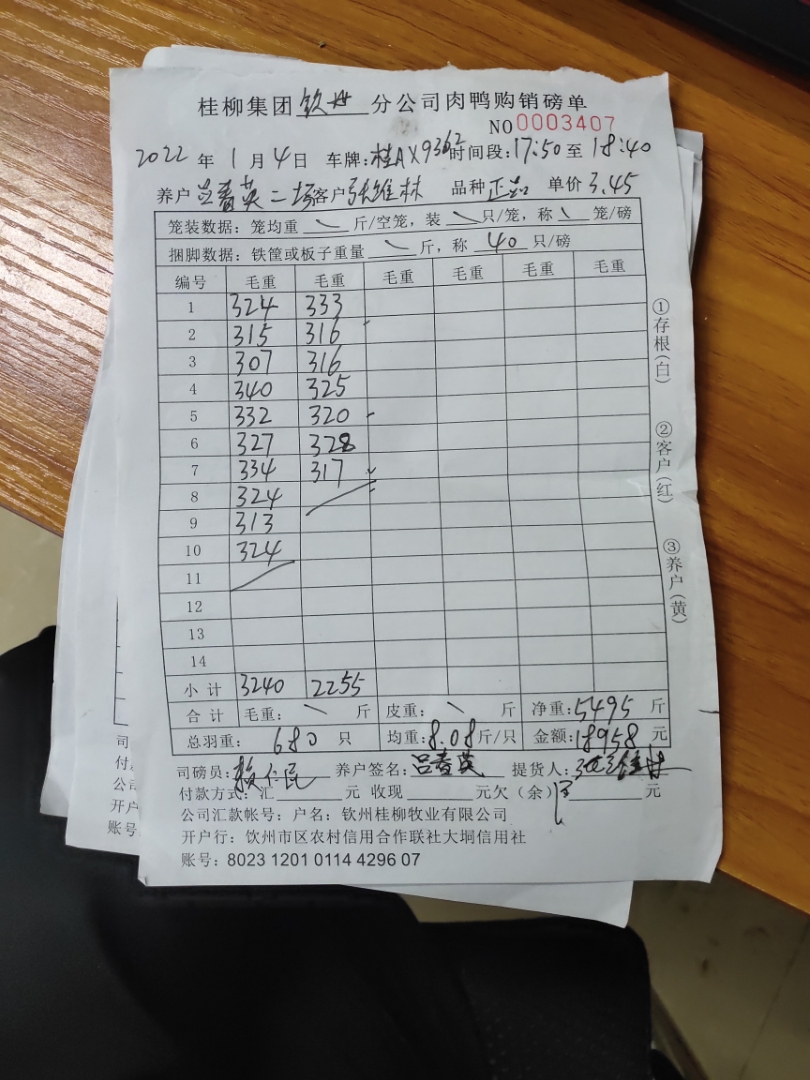 桂柳集团钦州分公司肉鸭购销磅单
NO 0003407
2022年1月4日 车牌:桂AX9362 时间段:17:50至18:40
养户吕春英二场 客户张维林 品种正品 单价3.45
笼装数据:笼均重\斤/空笼,装\只/笼,称\笼/磅
捆脚数据:铁筐或板子重量\斤,称40只/磅
编号 毛重 毛重 毛重 毛重 毛重 毛重
1 324 333
2 315 316
3 307 316
4 340 325
5 332 320
6 327 328
7 334 317
8 324
9 313
10 324
11
12
13
14
小计 3240 2255
合计 毛重:\斤 皮重:\斤 净重:5495斤
总羽重:680只 均重:8.08斤/只 金额:18958元
司磅员: 养户签名:吕春英 提货人:张维林
付款方式:汇 元 收现 元欠(余) 元
公司汇款帐号:户名:钦州桂柳牧业有限公司
开户行:钦州市区农村信用合作联社大垌信用社
账号:8023 1201 0114 4296 07
①存根(白)
②客户(红)
③养户(黄)
司
付
公
开户
账号